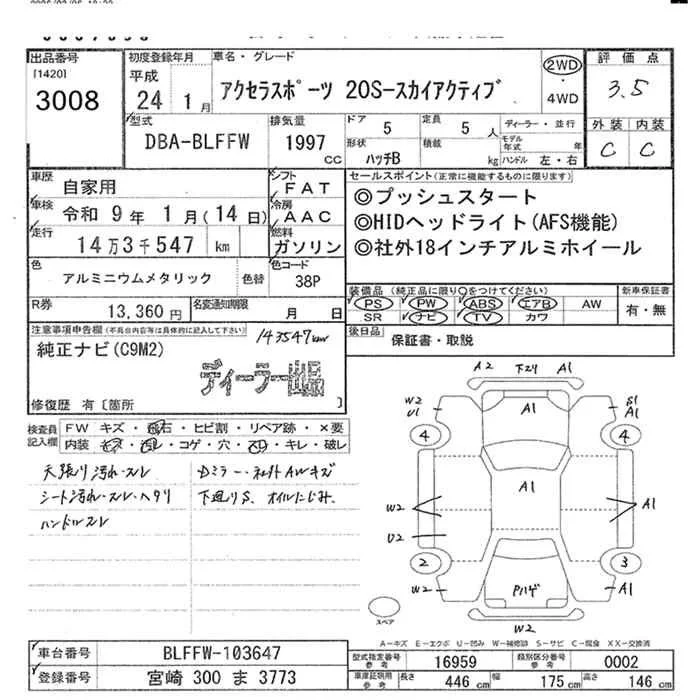 出品番号
[1420]
3008
初度登録年月
平成
24 1月
車名・グレード
アクセラスポーツ 20S-スカイアクティブ
2WD
・
4WD
評価点
3.5
外装 内装
C C
型式
DBA-BLFFW
排気量
1997
CC
ドア 5
形状 ハッチB
定員 5 人
積載 kg
ディーラー・並行
モデル年式 年
ハンドル 左・右
車歴 自家用
車検 令和 9年 1月(14日)
走行 14万3千547 km
シフト FAT
冷房 AAC
燃料 ガソリン
色 アルミニウムメタリック 色替
色コード 38P
R券 13,360円
名変通知期限 月 日
セールスポイント(正常に機能するものに限ります)
◎プッシュスタート
◎HIDヘッドライト(AFS機能)
◎社外18インチアルミホイール
装備品(純正品に限り○をつけてください)
PS PW ABS エアB AW
SR ナビ TV カワ
新車保証書
有・無
後日品 保証書・取説
注意事項申告欄(不具合内容等は具体的に記入して下さい)
143547km
純正ナビ(C9M2)
ディーラー出品
修復歴 有〔箇所 〕
検査員記入欄
FW キズ・飛石・ヒビ割・リペア跡・×要
内装 キズ・汚レ・コゲ・穴・スリ・キレ・破レ
天張り汚れ・スレ
シート汚れ・スレ・ヘタリ
ハンドルスレ
Dミラー・社外AWキズ
下廻りS、オイルにじみ、
A2 下スリ A1
W2
U1
A1
S1
A1
4 4
A1
W2
A1
U2
2 3
W2
Pハゲ
A1
W2
スペア
A-キズ E-エクボ U-凹み W-補修跡 S-サビ C-腐食 XX-交換済
車台番号 BLFFW-103647
登録番号 宮崎 300 ま 3773
型式指定番号 参考 16959
類別区分番号 参考 0002
車庫証明用 参考 長さ 446 cm 幅 175 cm 高さ 146 cm